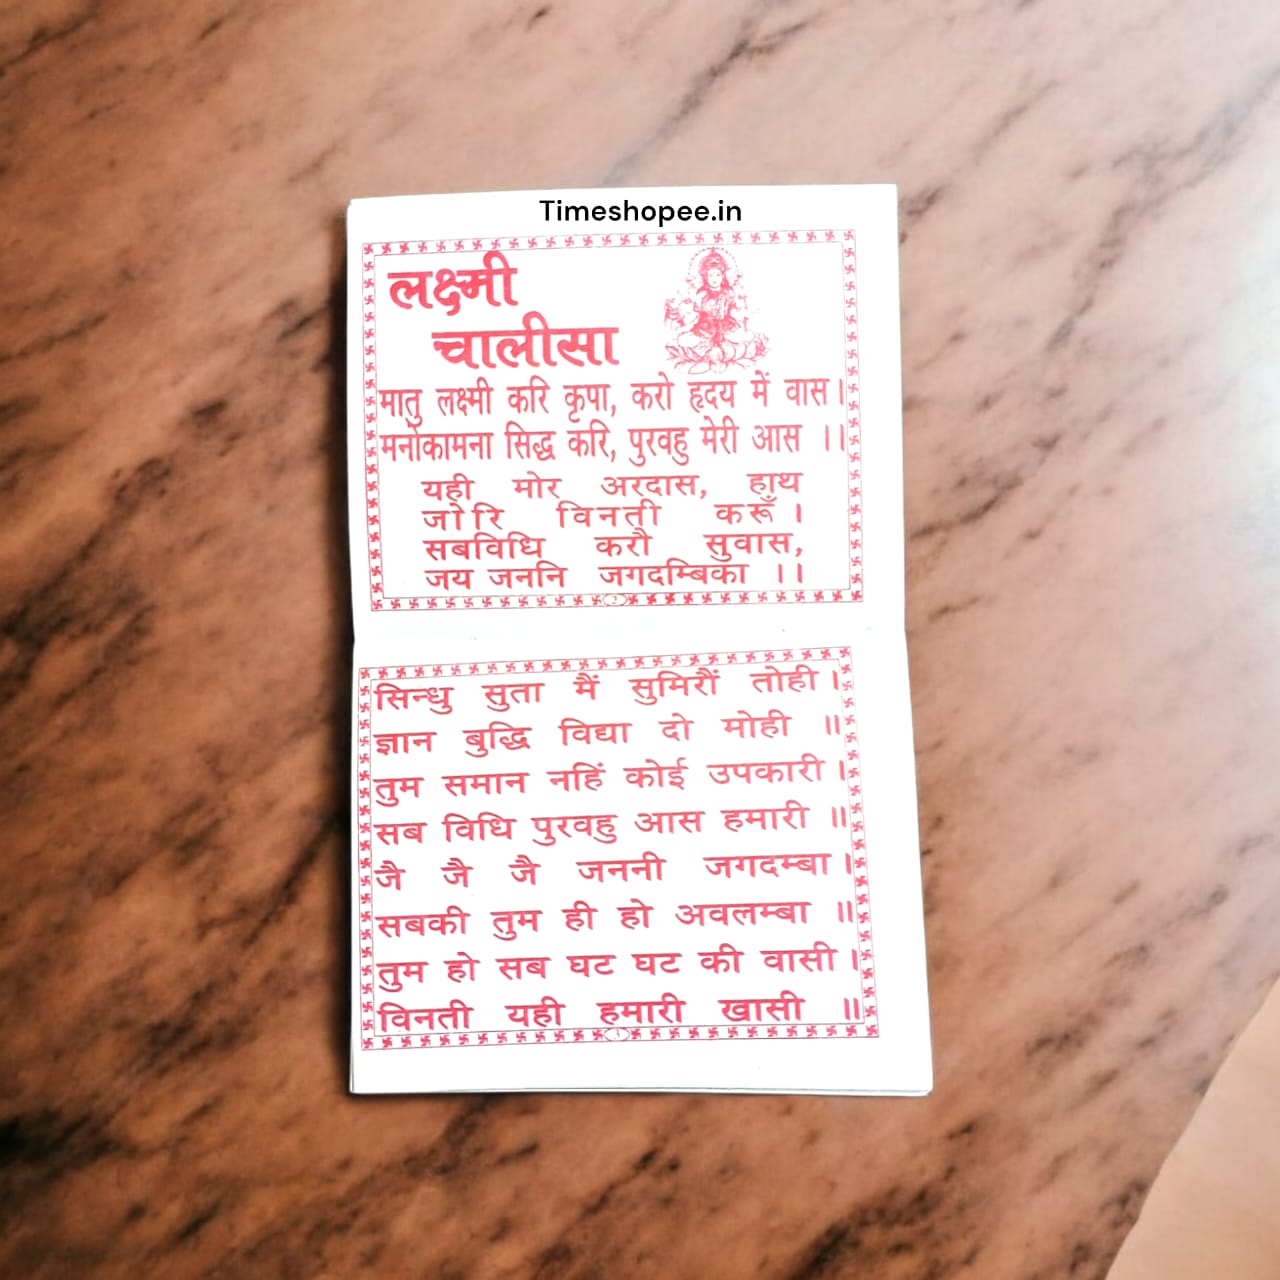 Timeshopee.in
लक्ष्मी
चालीसा
मातु लक्ष्मी करि कृपा, करो हृदय में वास।
मनोकामना सिद्ध करि, पुरवहु मेरी आस ।।
यही मोर अरदास, हाथ
जोरि विनती करूँ ।
सबविधि करौ सुवास,
जय जननि जगदम्बिका ।।
2
सिन्धु सुता मैं सुमिरौं तोही।
ज्ञान बुद्धि विद्या दो मोही ॥
तुम समान नहिं कोई उपकारी।
सब विधि पुरवहु आस हमारी ॥
जै जै जै जननी जगदम्बा।
सबकी तुम ही हो अवलम्बा ॥
तुम हो सब घट घट की वासी।
विनती यही हमारी खासी ॥